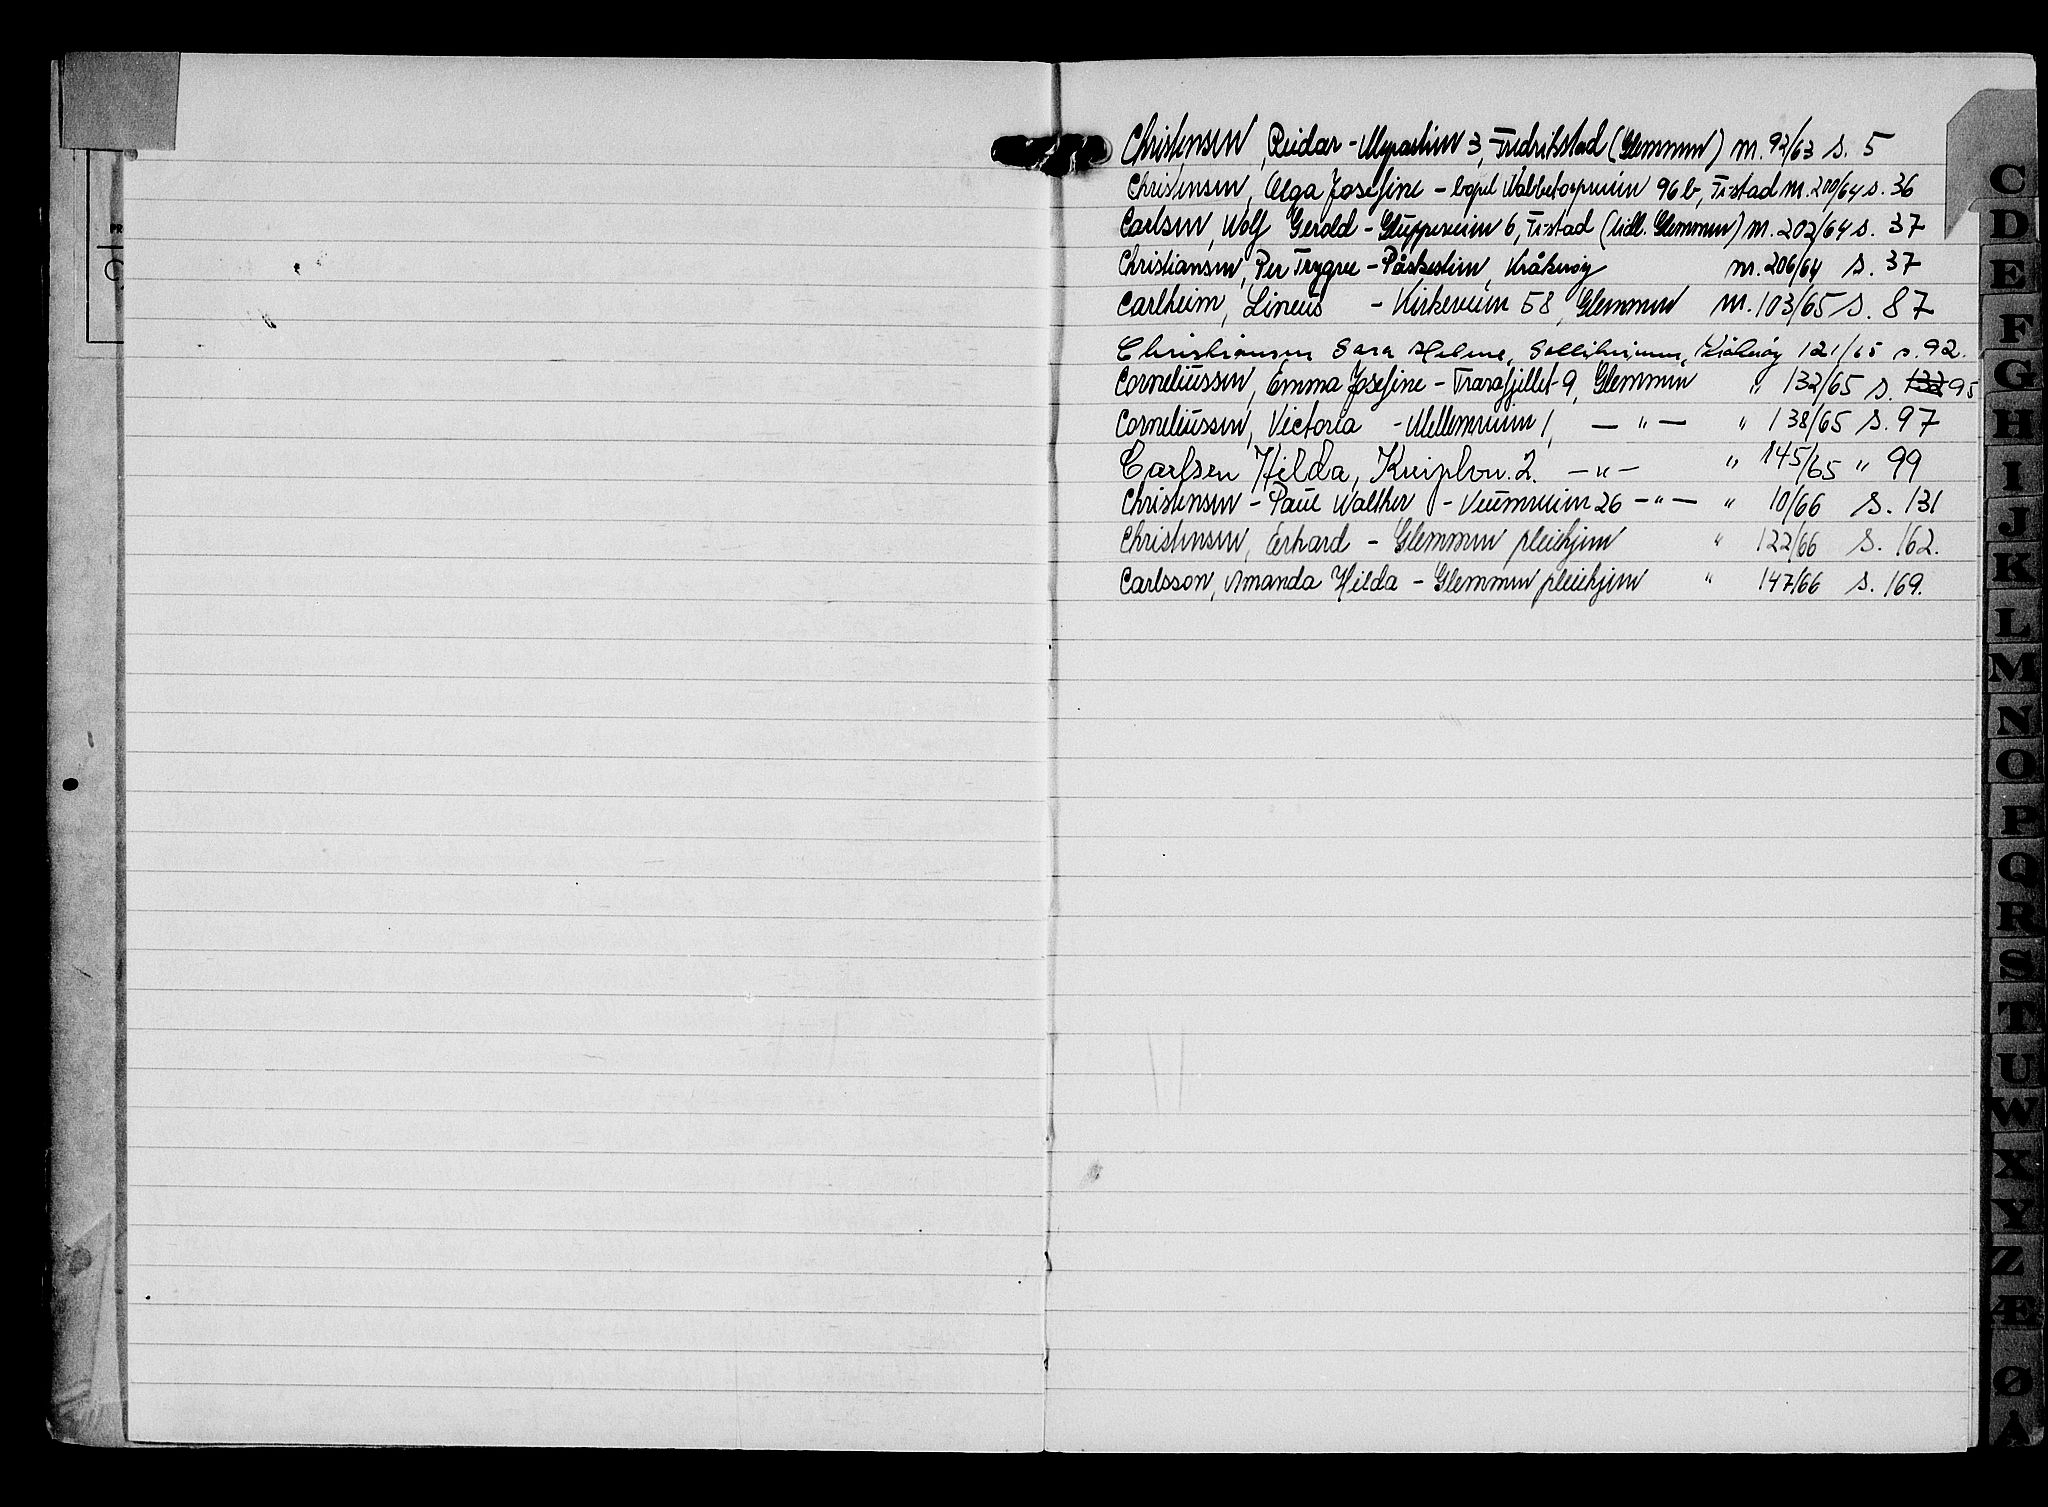 Christensen, Reidar - 3, Fredrikstad (Glemmen) nr. 92/63 s. 5
Christensen, Olga Josefine - Wabbetorpveien 96 b, Fr.stad nr. 200/64 s. 36
Carlsen, Wolf Gerold - Gluppeveien 6, Fr.stad (tidl. Glemmen) nr. 202/64 s. 37
Christiansen, Per Trygve - Påskestien, Kråkerøy nr. 206/64 s. 37
Carlheim, Lineus - Kirkeveien 58, Glemmen nr. 103/65 s. 87
Christiansen Sara Helene, Kråkerøy 121/65 s. 92.
Corneliussen, Emma Josefine - Trarafjellet 9, Glemmen " 132/65 s. 132 95
Corneliussen, Victoria - Mellemveien 1, — " — " 138/65 s. 97
Carlsen Hilda, 2. — " — " 145/65 " 99
Christensen - Paul Walther - Veumveien 26 — " — " 10/66 s. 131
Christensen, Erhard - Glemmen pleiehjem " 122/66 s. 162.
Carlsson, Amanda Hilda - Glemmen pleiehjem " 147/66 s. 169.
C
D
E
F
G
H
I
J
K
L
M
N
O
P
Q
R
S
T
U
W
X
Y
Z
Æ
Ø
Å